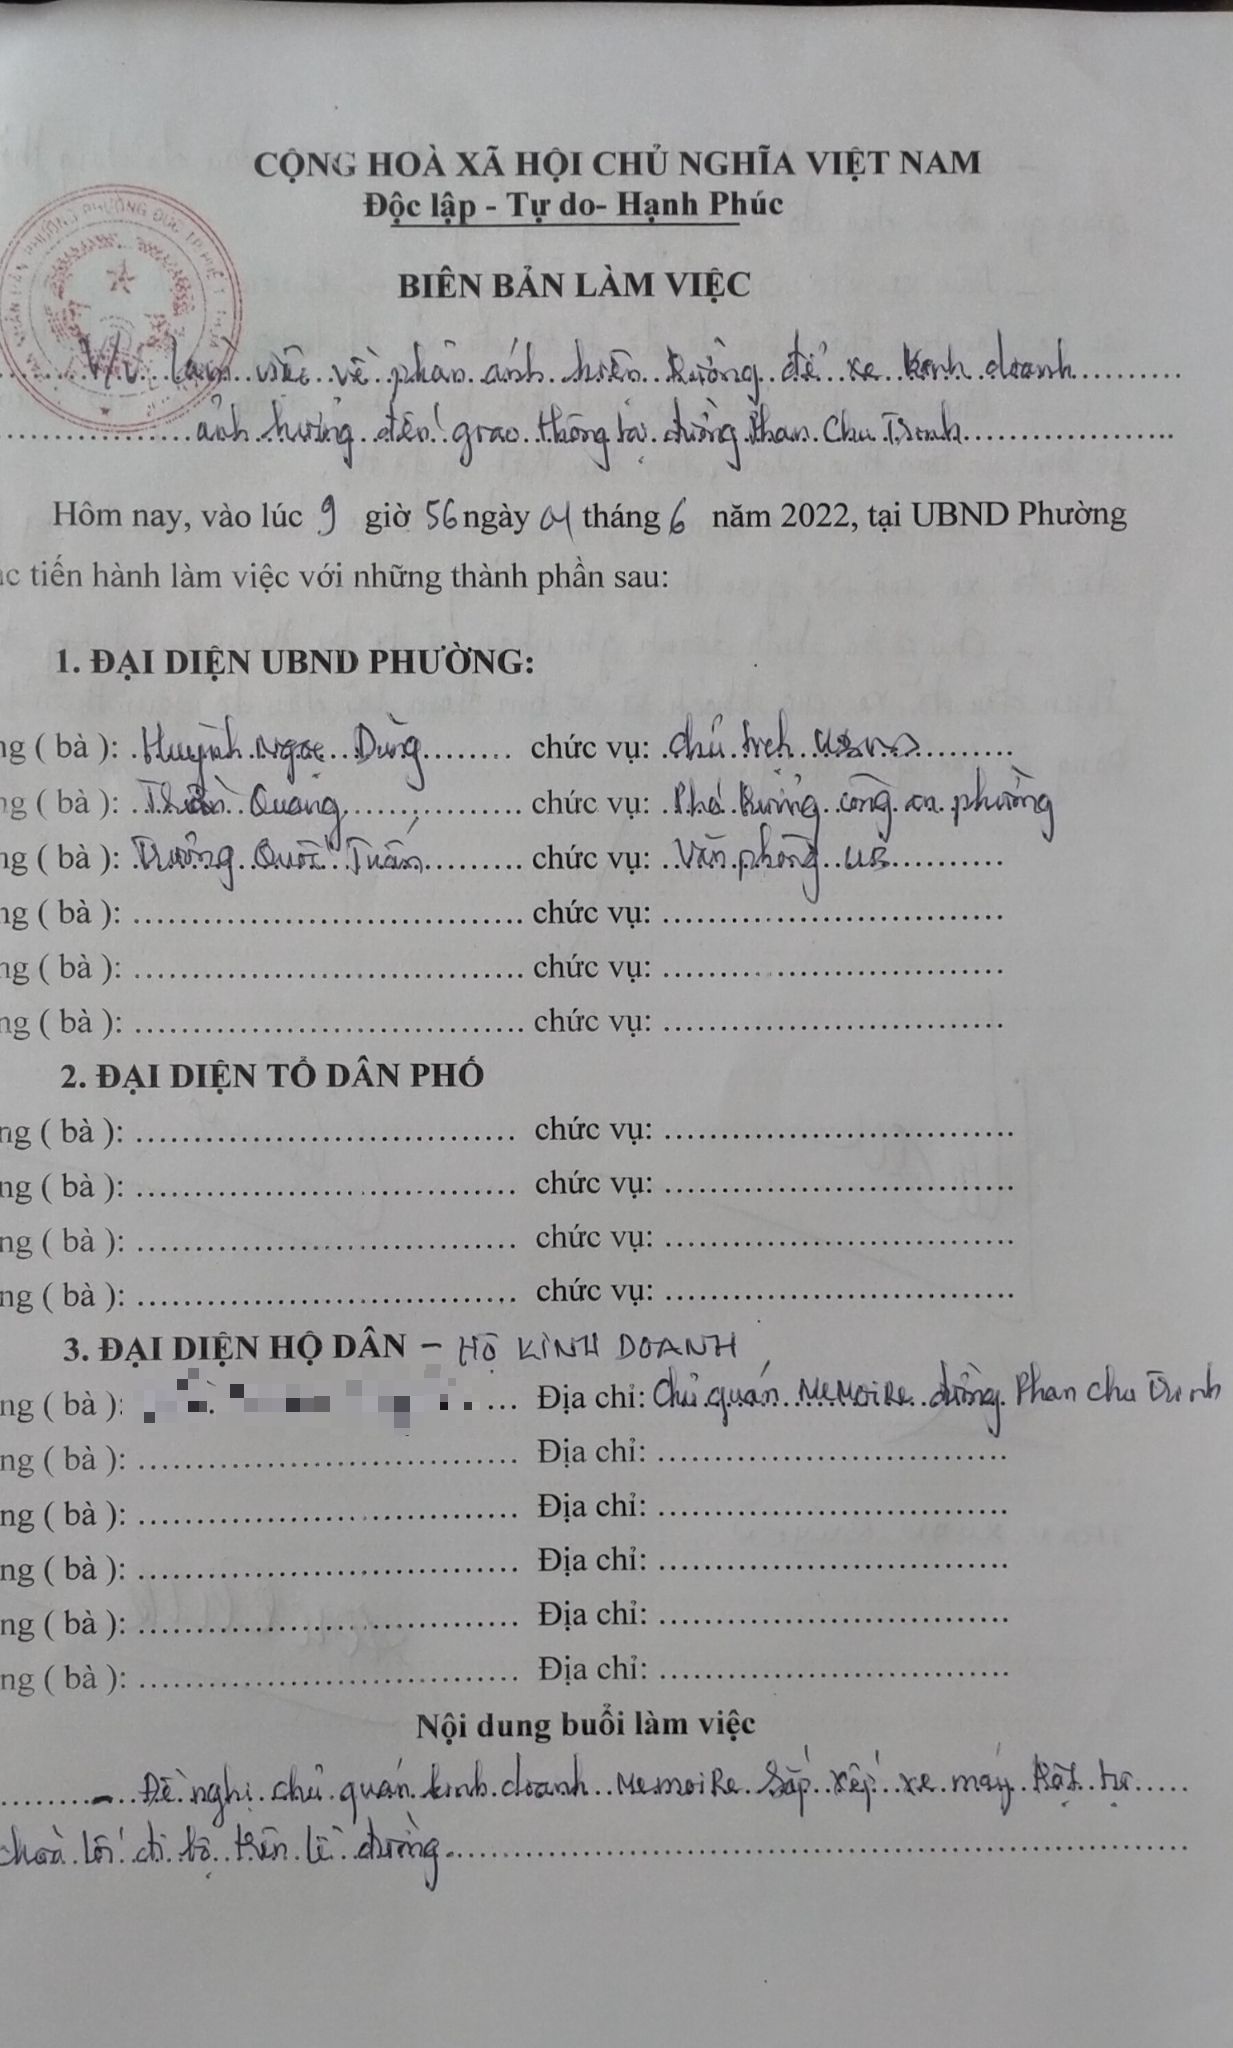 CỘNG HOÀ XÃ HỘI CHỦ NGHĨA VIỆT NAM
Độc lập - Tự do- Hạnh Phúc
BIÊN BẢN LÀM VIỆC
V/v làm việc về phản ánh hiện trường để xe kinh doanh
ảnh hưởng đến giao thông tại đường Phan Chu Trinh
Hôm nay, vào lúc 9 giờ 56 ngày 01 tháng 6 năm 2022, tại UBND Phường
tiến hành làm việc với những thành phần sau:
1. ĐẠI DIỆN UBND PHƯỜNG:
ng ( bà ): Huỳnh Ngọc Dũng chức vụ: chủ tịch UBND
ng ( bà ): Quang chức vụ: Phó trưởng công an phường
ng ( bà ): Trương Quốc Tuấn chức vụ: Văn phòng UB
ng ( bà ): chức vụ:
ng ( bà ): chức vụ:
ng ( bà ): chức vụ:
2. ĐẠI DIỆN TỔ DÂN PHỐ
ng ( bà ): chức vụ:
ng ( bà ): chức vụ:
ng ( bà ): chức vụ:
ng ( bà ): chức vụ:
3. ĐẠI DIỆN HỘ DÂN – HỘ KINH DOANH
ng ( bà ): Địa chỉ: Chủ quán MEMOIRE đường Phan Chu Trinh
ng ( bà ): Địa chỉ:
ng ( bà ): Địa chỉ:
ng ( bà ): Địa chỉ:
ng ( bà ): Địa chỉ:
ng ( bà ): Địa chỉ:
Nội dung buổi làm việc
- Đề nghị chủ quán kinh doanh MEMOIRE sắp xếp xe máy trật tự
chừa lối đi bộ trên lề đường